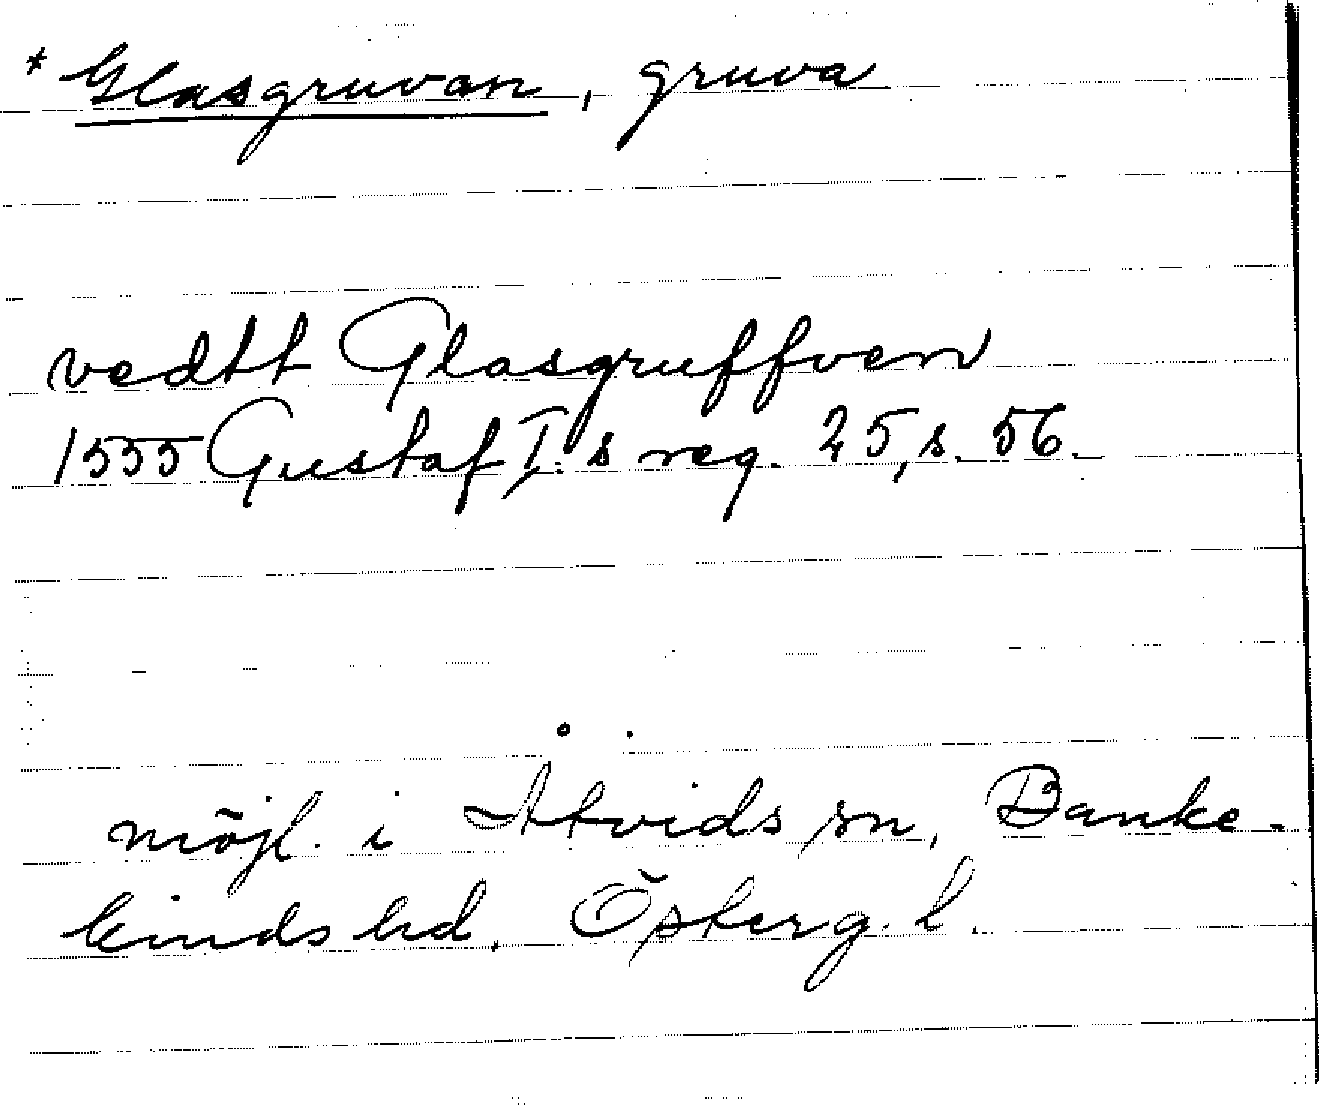 * Glasgruvan, gruva
vedtt Glasgruffven
1555 Gustaf I:s reg. 25, s. 56.
möjl. i Åtvids sn, Banke-
kinds hd. Österg. l.